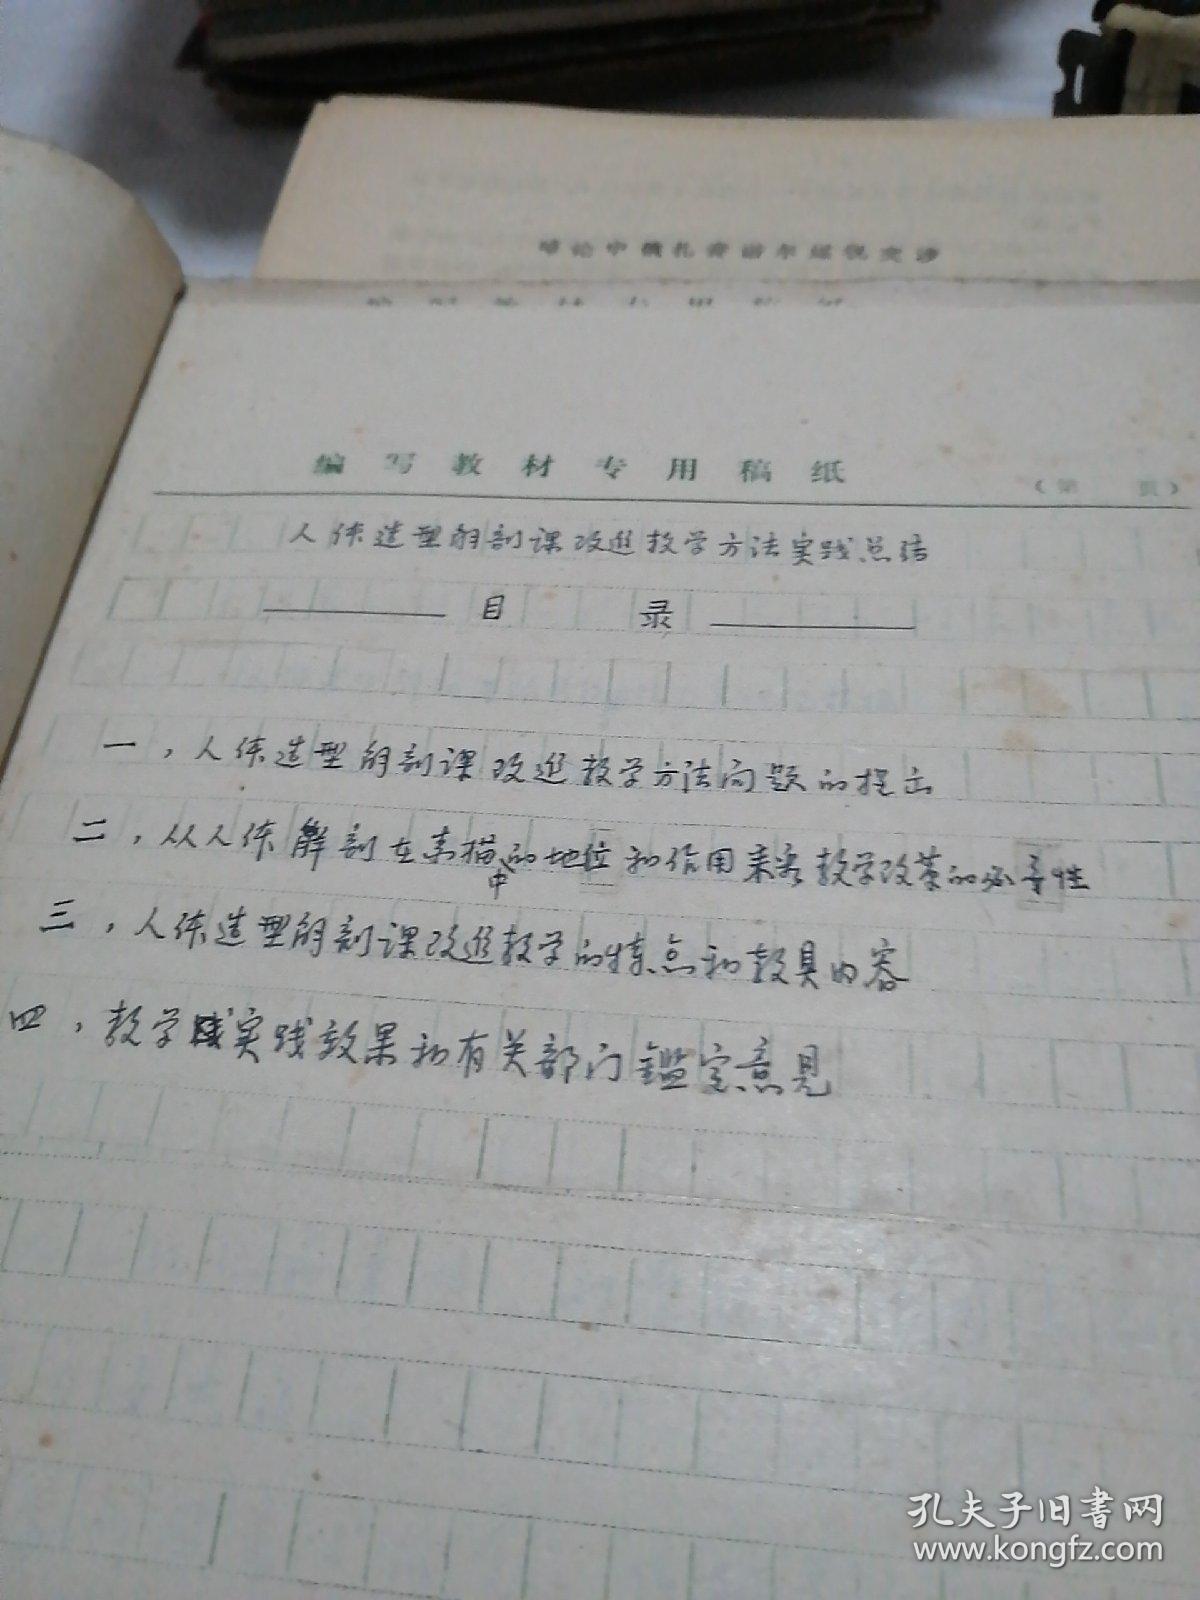 中俄扎赉诺尔煤
编写教材专用稿纸
(第 页)
人体造型解剖课改进教学方法实践总结
目 录
一，人体造型解剖课改进教学方法问题的提出
二，从人体解剖在素描中的地位和作用来看教学改革的必要性
三，人体造型解剖课改进教学的特点和教具内容
四，教学实践效果和有关部门鑑定意见
孔夫子旧书网
www.kongfz.com